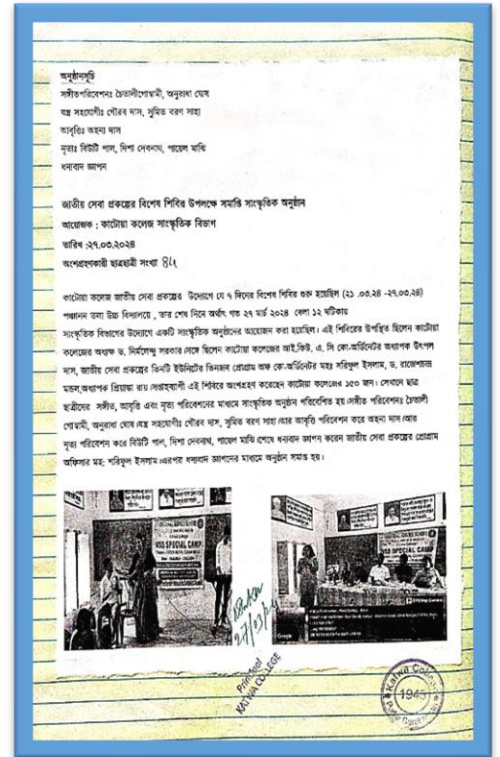 অনুষ্ঠানসূচি
সঙ্গীতপরিবেশনঃ চৈতালীগোস্বামী, অনুরাধা ঘোষ
যন্ত্র সহযোগীঃ গৌরব দাস, সুমিত বরণ সাহা
আবৃত্তিঃ অহনা দাস
নৃত্যঃ বিউটি পাল, দিশা দেবনাথ, পায়েল মাঝি
ধন্যবাদ জ্ঞাপন
জাতীয় সেবা প্রকল্পের বিশেষ শিবির উপলক্ষে সমাপ্তি সাংস্কৃতিক অনুষ্ঠান
আয়োজক : কাটোয়া কলেজ সাংস্কৃতিক বিভাগ
তারিখ :২৭.০৩.২০২৪
অংশগ্রহণকারী ছাত্রছাত্রী সংখ্যা
কাটোয়া কলেজ জাতীয় সেবা প্রকল্পের উদ্যোগে যে ৭ দিনের বিশেষ শিবির শুরু হয়েছিল (২১ .০৩.২৪ -২৭.০৩.২৪)
পঞ্চানন তলা উচ্চ বিদ্যালয়ে , তার শেষ দিনে অর্থাৎ গত ২৭ মার্চ ২০২৪ বেলা ১২ ঘটিকায়
সাংস্কৃতিক বিভাগের উদ্যোগে একটি সাংস্কৃতিক অনুষ্ঠানের আয়োজন করা হয়েছিল। এই শিবিরের উপস্থিত ছিলেন কাটোয়া
কলেজের অধ্যক্ষ ড. নির্মলেন্দু সরকার।সঙ্গে ছিলেন কাটোয়া কলেজের আই.কিউ. এ. সি কো-অর্ডিনেটর অধ্যাপক উৎপল
দাস, জাতীয় সেবা প্রকল্পের তিনটি ইউনিটের তিনজন প্রোগ্রাম অফ কো-অর্ডিনেটর মহঃ সরিফুল ইসলাম, ড. রাজেশচন্দ্র
মন্ডল,অধ্যাপক প্রিয়াঙ্কা রায়।সপ্তাহব্যাপী এই শিবিরে অংশগ্রহণ করেছেন কাটোয়া কলেজের ১৫০ জন। সেখানে ছাত্র
ছাত্রীদের সঙ্গীত, আবৃত্তি এবং নৃত্য পরিবেশনের মাধ্যমে সাংস্কৃতিক অনুষ্ঠান পরিবেশিত হয়।সঙ্গীত পরিবেশনঃ চৈতালী
গোস্বামী, অনুরাধা ঘোষ।যন্ত্র সহযোগীঃ গৌরব দাস, সুমিত বরণ সাহা।আর আবৃত্তি পরিবেশন করে অহনা দাস।আর
নৃত্য পরিবেশন করে বিউটি পাল, দিশা দেবনাথ, পায়েল মাঝি।শেষে ধন্যবাদ জ্ঞাপন করেন জাতীয় সেবা প্রকল্পের প্রোগ্রাম
অফিসার মহ: শরিফুল ইসলাম।এরপর ধন্যবাদ জ্ঞাপনের মাধ্যমে অনুষ্ঠান সমাপ্ত হয়।
NSS SPECIAL CAMP
NSS SPECIAL CAMP
Google
27/03/24
Principal
KATWA COLLEGE
Katwa College
1948